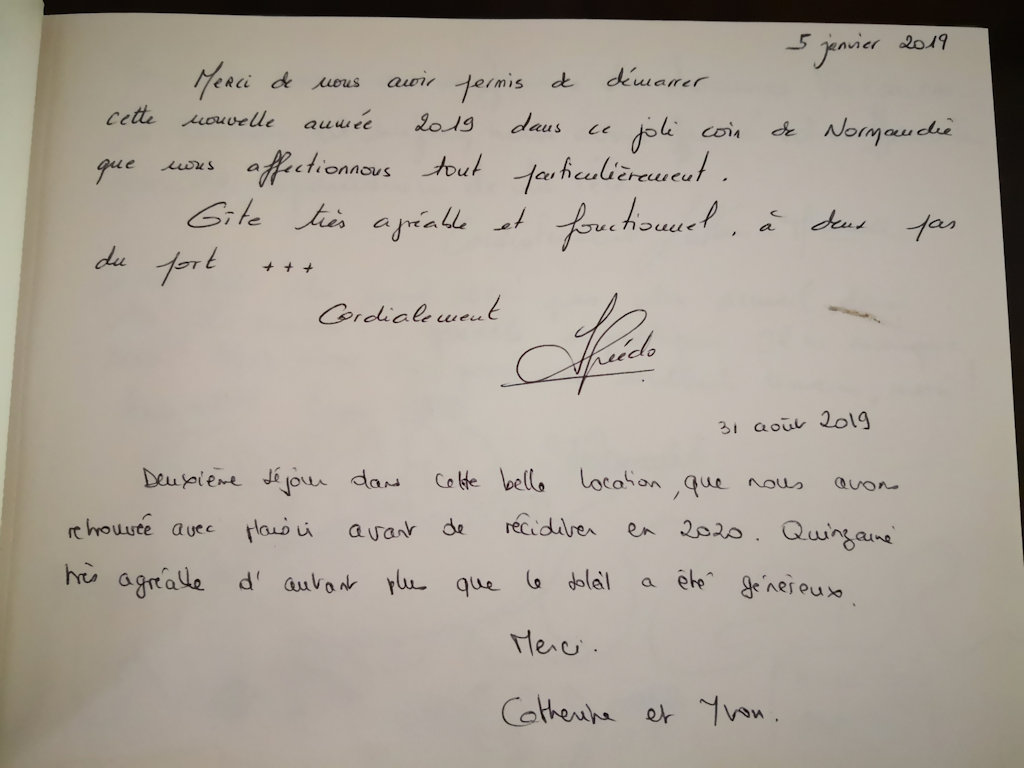 5 janvier 2019
Merci de nous avoir permis de démarrer
cette nouvelle année 2019 dans ce joli coin de Normandie
que nous affectionnons tout particulièrement.
Gîte très agréable et fonctionnel, à deux pas
du port +++
Cordialement
31 août 2019
Deuxième séjour dans cette belle location, que nous avons
retrouvée avec plaisir avant de récidiver en 2020. Quinzaine
très agréable d'autant plus que le soleil a été généreux.
Merci.
Catherine et Yvon.